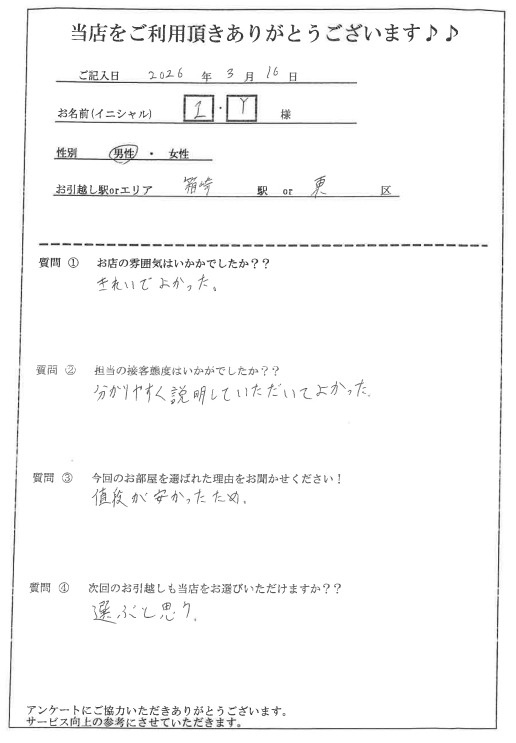 当店をご利用頂きありがとうございます♪♪
ご記入日 2026 年 3 月 16 日
お名前(イニシャル) I ・ Y 様
性別 男性 ・ 女性
お引越し駅orエリア 箱崎 駅 or 東 区
質問 ① お店の雰囲気はいかかでしたか??
きれいでよかった。
質問 ② 担当の接客態度はいかがでしたか??
分かりやすく説明していただいてよかった。
質問 ③ 今回のお部屋を選ばれた理由をお聞かせください!
値段が安かったため。
質問 ④ 次回のお引越しも当店をお選びいただけますか??
選ぶと思う。
アンケートにご協力いただきありがとうございます。
サービス向上の参考にさせていただきます。